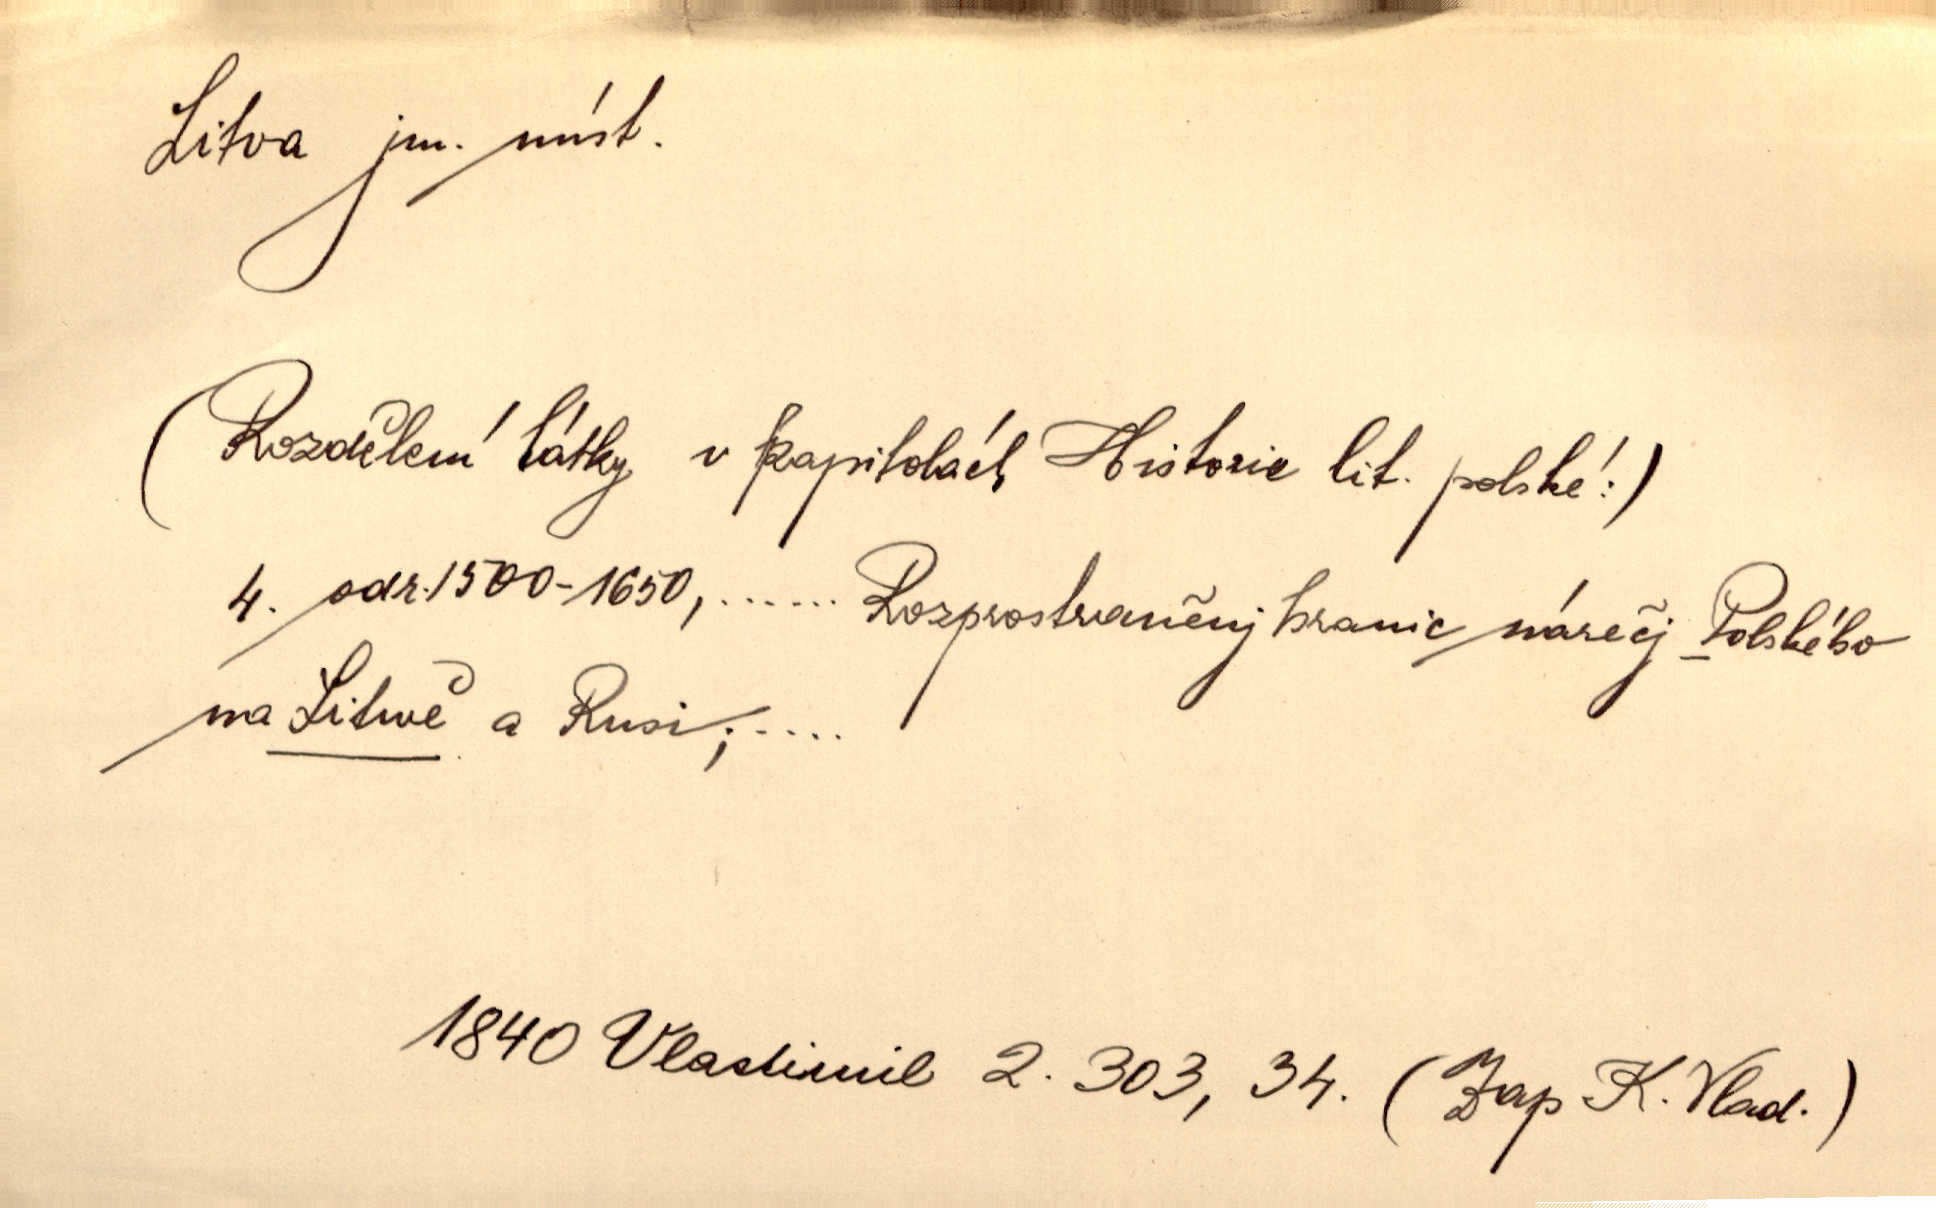 Litva jm. míst.
(Rozdělení látky v kapitolách Historie lit. polské:)
4. od r. 1500-1650, ...... Rozprostraněnj hranic nárečj Polského
na Litwě a Rusi; ....
1840 Vlastimil 2. 303, 34. (Zap K. Vlad.)